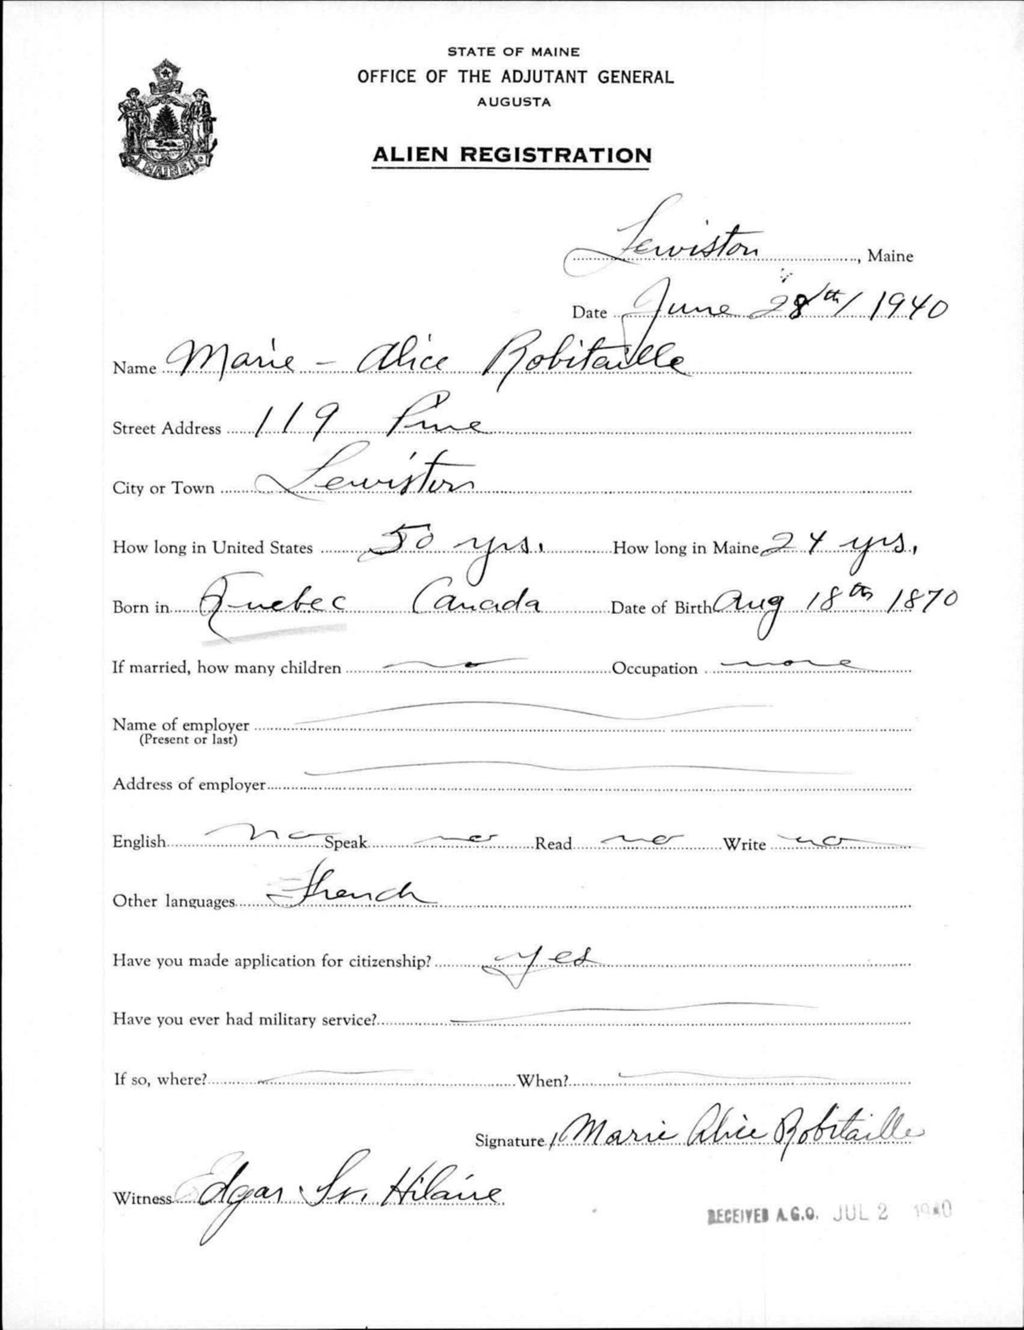 STATE OF MAINE
OFFICE OF THE ADJUTANT GENERAL
AUGUSTA
ALIEN REGISTRATION
MAINE
Lewiston, Maine
Date June 28th/1940
Name Marie - Alice Robitaille
Street Address 119 Pine
City or Town Lewiston
How long in United States 50 yrs. How long in Maine 24 yrs.
Born in Quebec Canada Date of Birth Aug 18th 1870
If married, how many children no Occupation none
Name of employer
(Present or last)
Address of employer
English no Speak no Read no Write no
Other languages French
Have you made application for citizenship? yes
Have you ever had military service?
If so, where? When?
Signature Marie Alice Robitaille
Witness Edgar St. Hilaire
RECEIVED A.G.O. JUL 2 1940